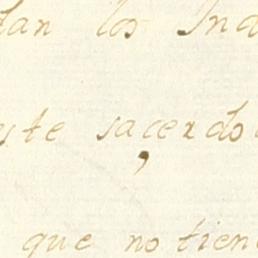 tan los Ind
este sacerdo
que no tiene